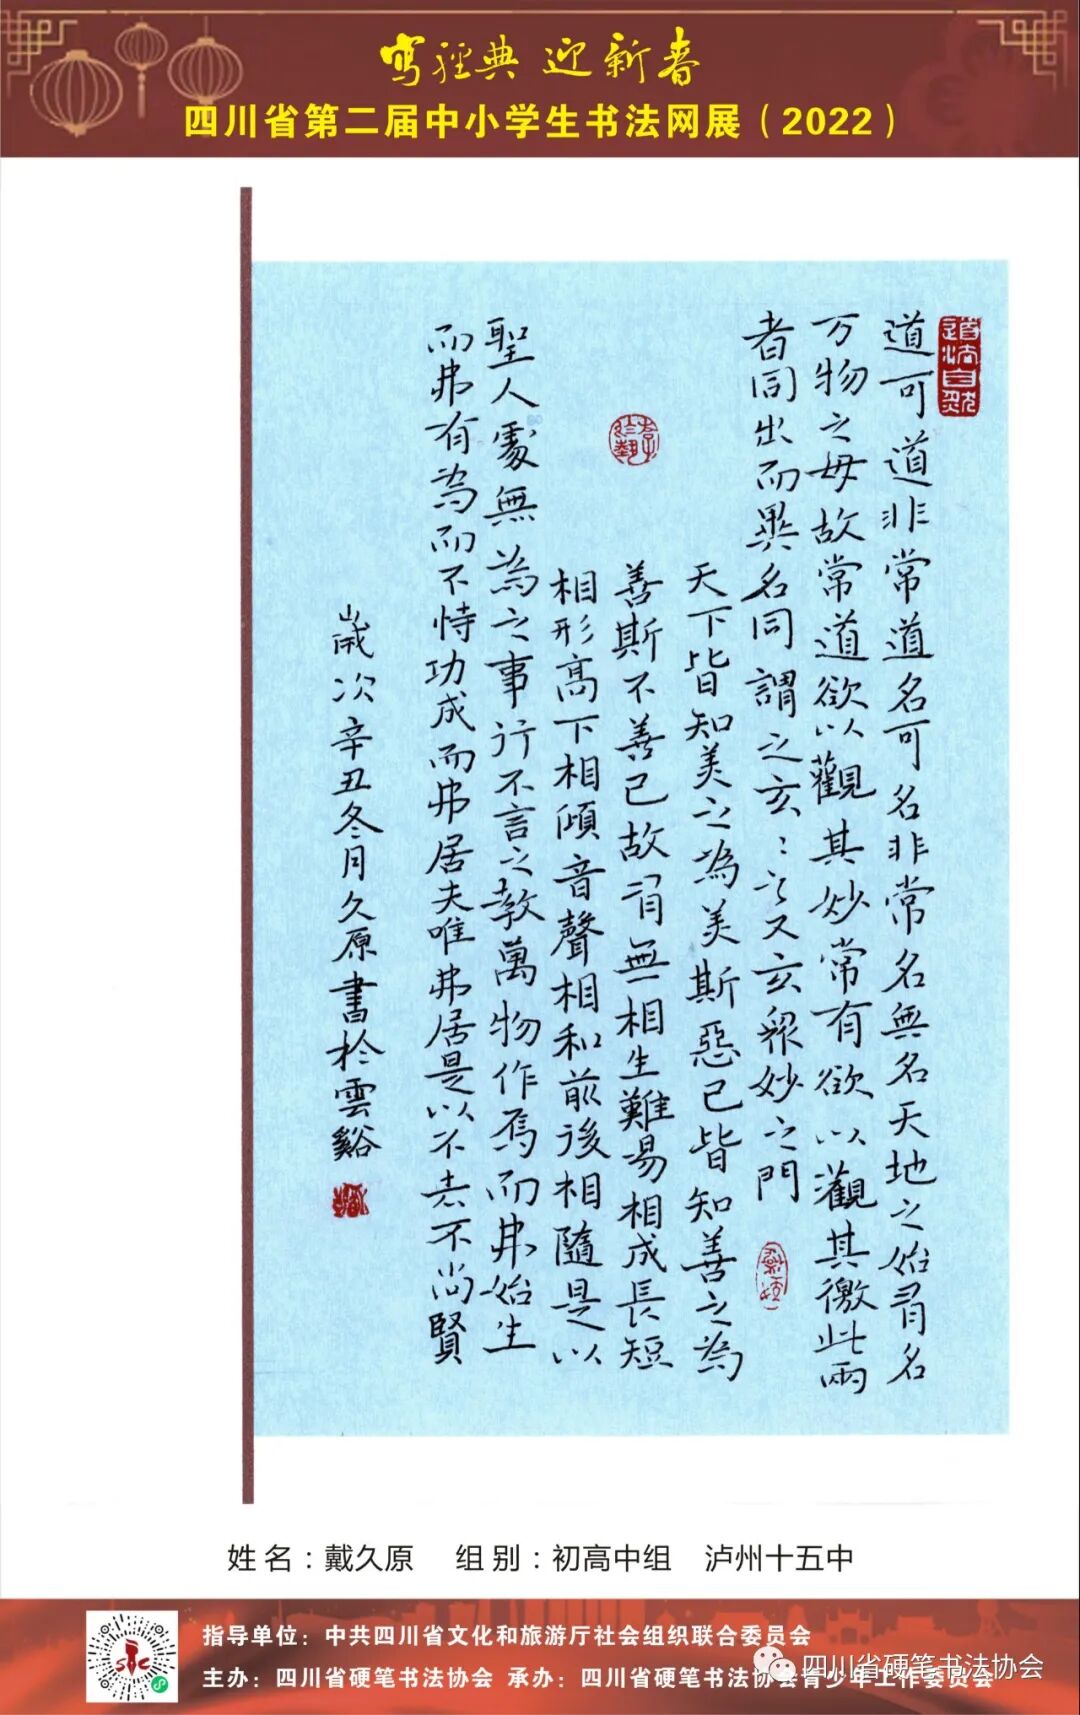 寫經典 迎新春
四川省第二届中小学生书法网展（2022）
道法自然
道可道非常道名可名非常名無名天地之始有名
万物之母故常道欲以觀其妙常有欲以觀其徼此兩
者同出而異名同謂之玄:之又玄眾妙之門
天下皆知美之為美斯惡已皆知善之為
善斯不善已故有無相生難易相成長短
相形高下相傾音聲相和前後相隨是以
聖人處無為之事行不言之教萬物作焉而弗始生
而弗有為而不恃功成而弗居夫唯弗居是以不去不尚賢
歲次辛丑冬月久原書於雲谿
姓名：戴久原 组别：初高中组 泸州十五中
指导单位：中共四川省文化和旅游厅社会组织联合委员会
主办：四川省硬笔书法协会 承办：四川省硬笔书法协会青少年工作委员会
四川省硬笔书法协会